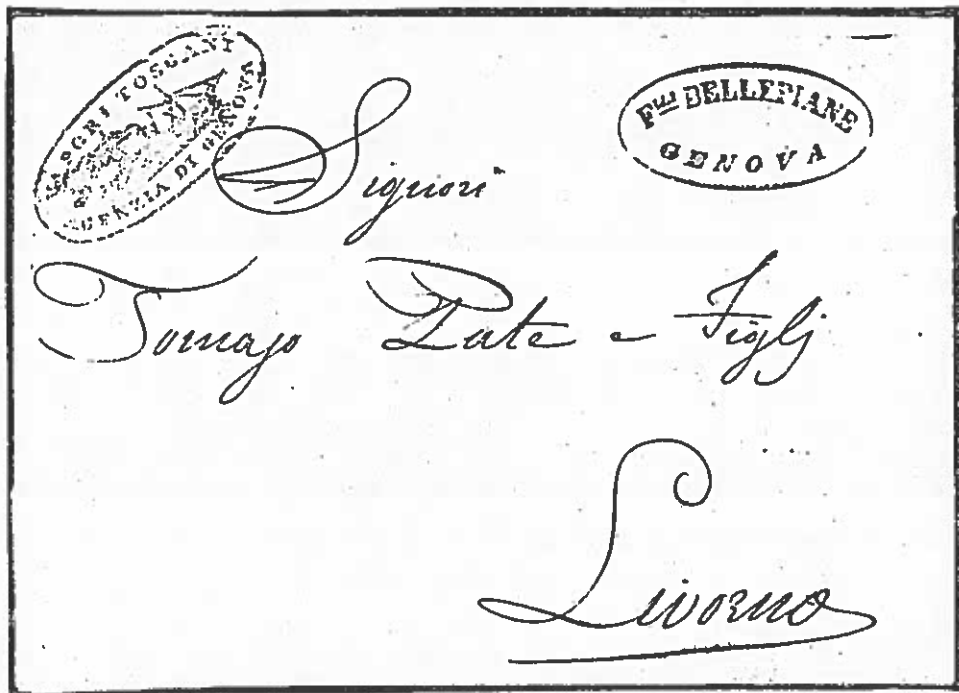 AGENZIA DI GENOVA
Flli DELLEPIANE
GENOVA
Signori
Tomajo Pate e Figlj
Livorno